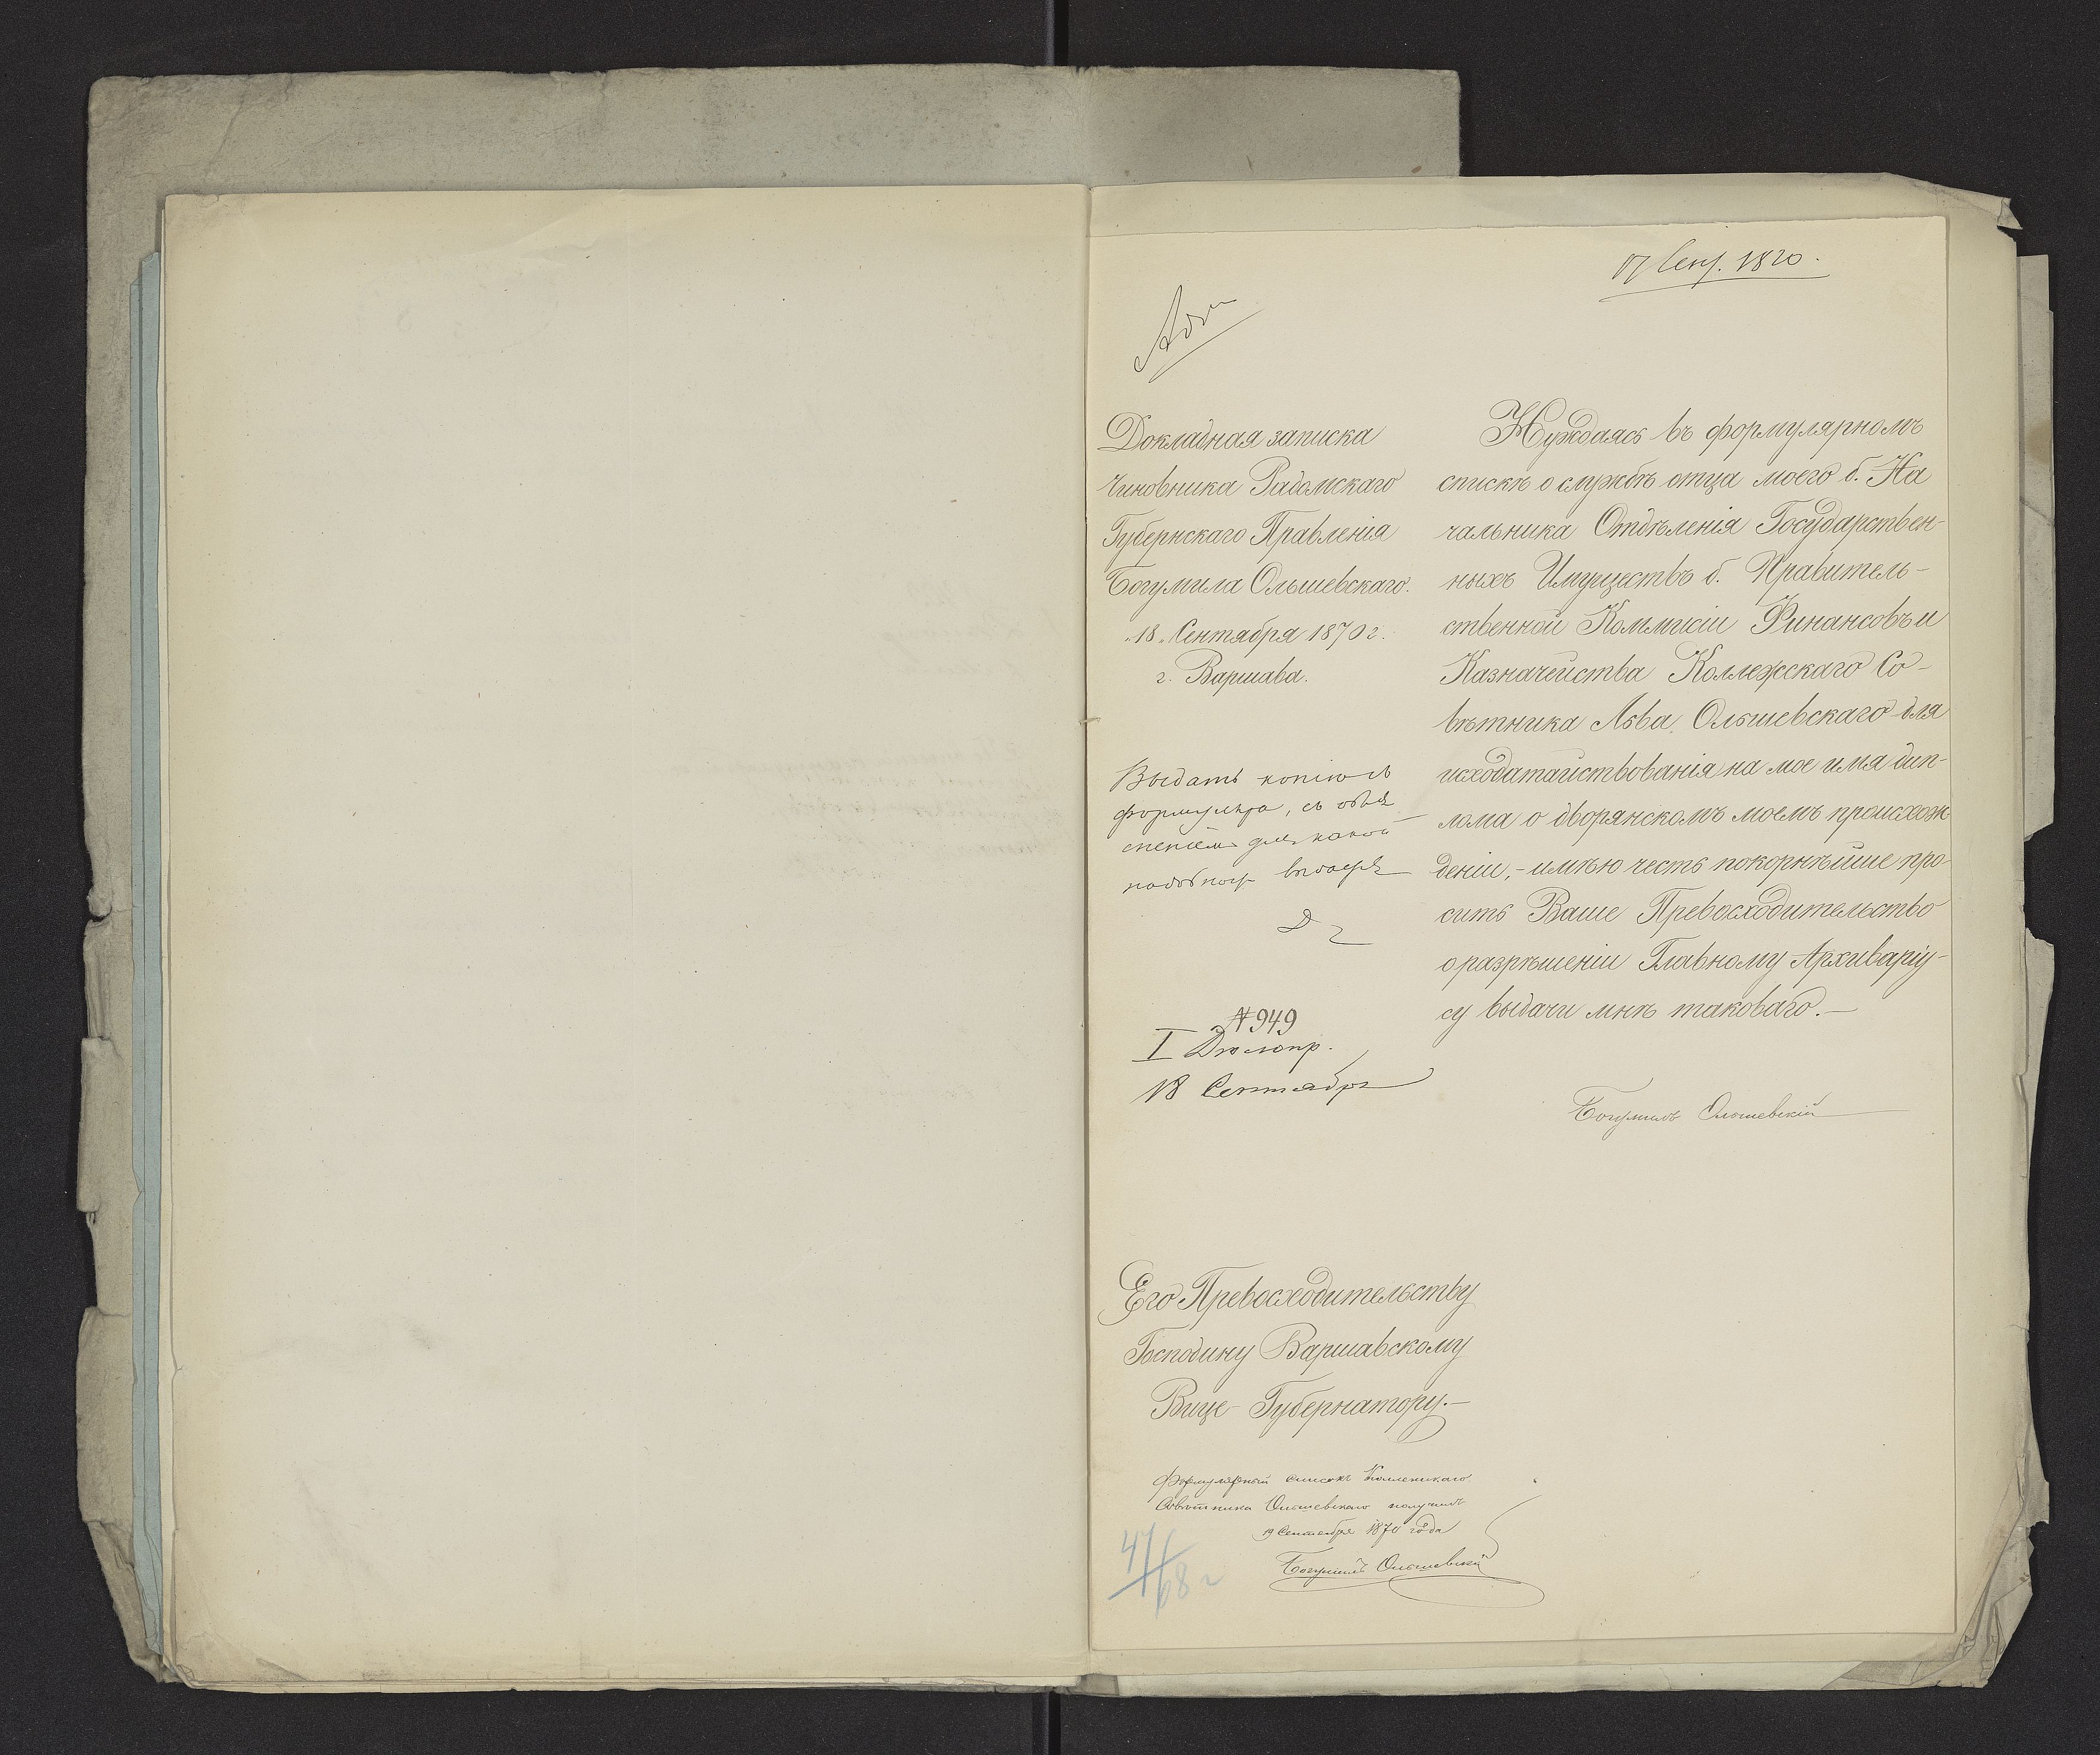 17 Сент. 1870.
Докладная записка
Чиновника Радомскаго
Губернскаго Правленія
Богумила Ольшевскаго.
"18" Сентября 1870 г.
г. Варшава.
Выдать копію съ
формуляра, съ объя
сненіем для какой
надобност выдается
№ 949
I Дѣлопр.
18 Сентября
Нуждаясь въ формулярномъ
спискѣ о службѣ отца моего б. На
чальника Отдѣленія Государствен-
ныхъ Имуществъ б. Правитель-
ственной Коммисіи Финансовъ и
Казначейства Коллежскаго Со-
вѣтника Льва Ольшевскаго для
исходатайствованія на мое имя дип-
лома о дворянскомъ моемъ происхож
деніи, - имѣю честь покорнѣйше про-
сить Ваше Превосходительство
о разрѣшеніи Главному Архиваріу-
су выдачи мнѣ таковаго. —
Богумилъ Ольшевскій
Его Превосходительству
Господину Варшавскому
Вице-Губернатору. —
Формулярный списокъ Коллежскаго
Совѣтника Ольшевскаго получилъ
19 Сентября 1870 года
Богумилъ Ольшевскій